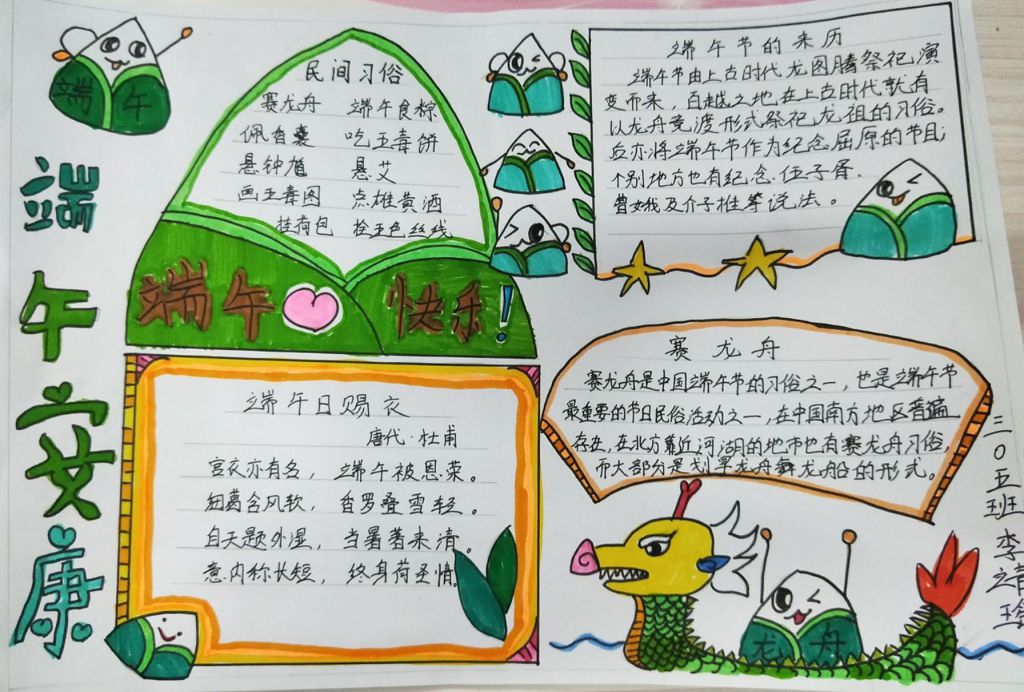 端午
端午安康
民间习俗
赛龙舟 端午食粽
佩香囊 吃五毒饼
悬钟馗 悬艾
画五毒图 点雄黄酒
挂荷包 拴五色丝线
端午快乐!
端午节的来历
端午节由上古时代龙图腾祭祀演
变而来，百越之地在上古时代就有
以龙舟竞渡形式祭祀龙祖的习俗。
后亦将端午节作为纪念屈原的节日;
个别地方也有纪念伍子胥.
曹娥及介子推等说法。
端午日赐衣
唐代·杜甫
宫衣亦有名，端午被恩荣。
细葛含风软，香罗叠雪轻。
自天题处湿，当暑著来清。
意内称长短，终身荷圣情。
赛龙舟
赛龙舟是中国端午节的习俗之一，也是端午节
最重要的节日民俗活动之一，在中国南方地区普遍
存在，在北方靠近河湖的地市也有赛龙舟习俗，
而大部分是划旱龙舟舞龙船的形式。
龙舟
三〇五班 李靖